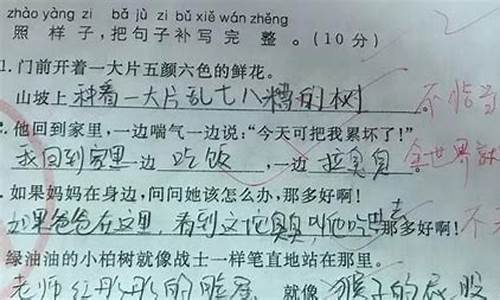 zhào yàng zi bǎ jù zi bǔ xiě wán zhěng
照 样 子，把 句 子 补 写 完 整 。（10 分）
1. 门前开着一大片五颜六色的鲜花。
山坡上种着一大片乱七八糟的树
他回到家里，一边喘气一边说：“今天可把我累坏了！”
我回到家里一边吃饭，一边拉臭臭。全世界
如果妈妈在身边，问问她该怎么办，那多好啊！
如果爸爸在这里，看到这坨臭臭叫他吃去那多好啊！
绿油油的小柏树就像战士一样笔直地站在那里。
老师红彤彤的脸蛋就像猴子的屁股